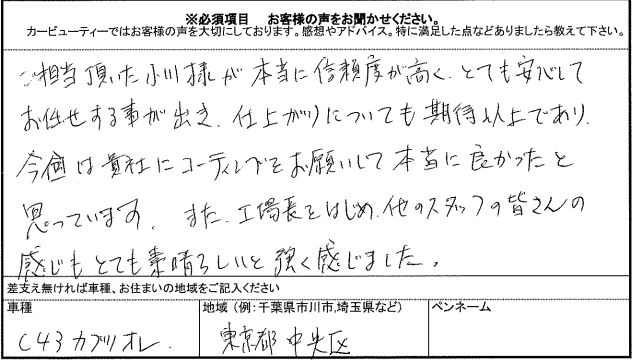 ※必須項目　お客様の声をお聞かせください。
カービューティーではお客様の声を大切にしております。感想やアドバイス。特に満足した点などありましたら教えて下さい。
ご担当頂いた小川様が本当に信頼度が高く、とても安心して
お任せする事が出き、仕上がりについても期待以上であり、
今回は貴社にコーティングをお願いして本当に良かったと
思っています。また、工場長をはじめ、他のスタッフの皆さんの
感じもとても素晴らしいと強く感じました。
差支え無ければ車種、お住まいの地域をご記入ください
車種　地域（例：千葉県市川市,埼玉県など）　ペンネーム
C43カブリオレ.　東京都中央区